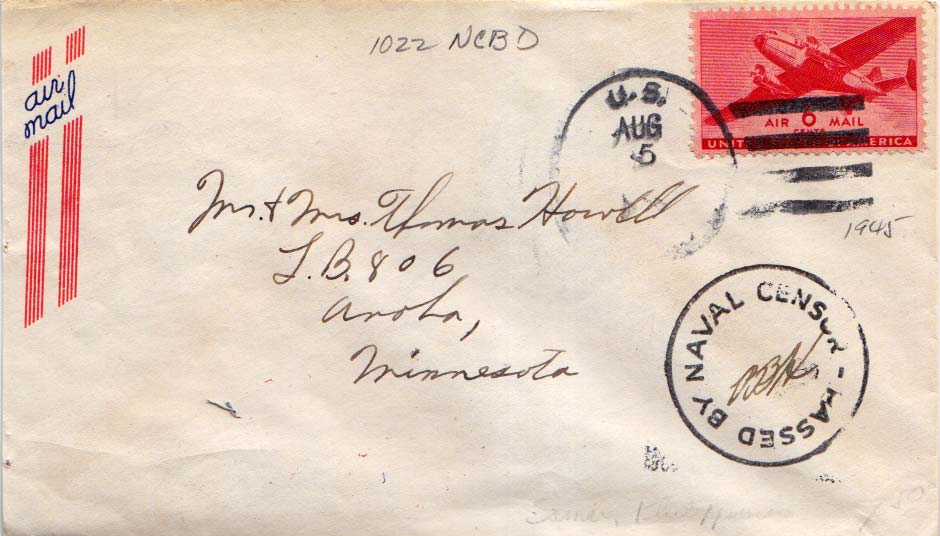 1022 NCBD
air
mail
U.S.
AUG
5
AIR 6 MAIL
CENTS
UNITED STATES OF AMERICA
1945
Mr. & Mrs. Thomas Howell
L.B. 806
Anoka,
Minnesota
PASSED BY NAVAL CENSOR -
Samar, Philippines